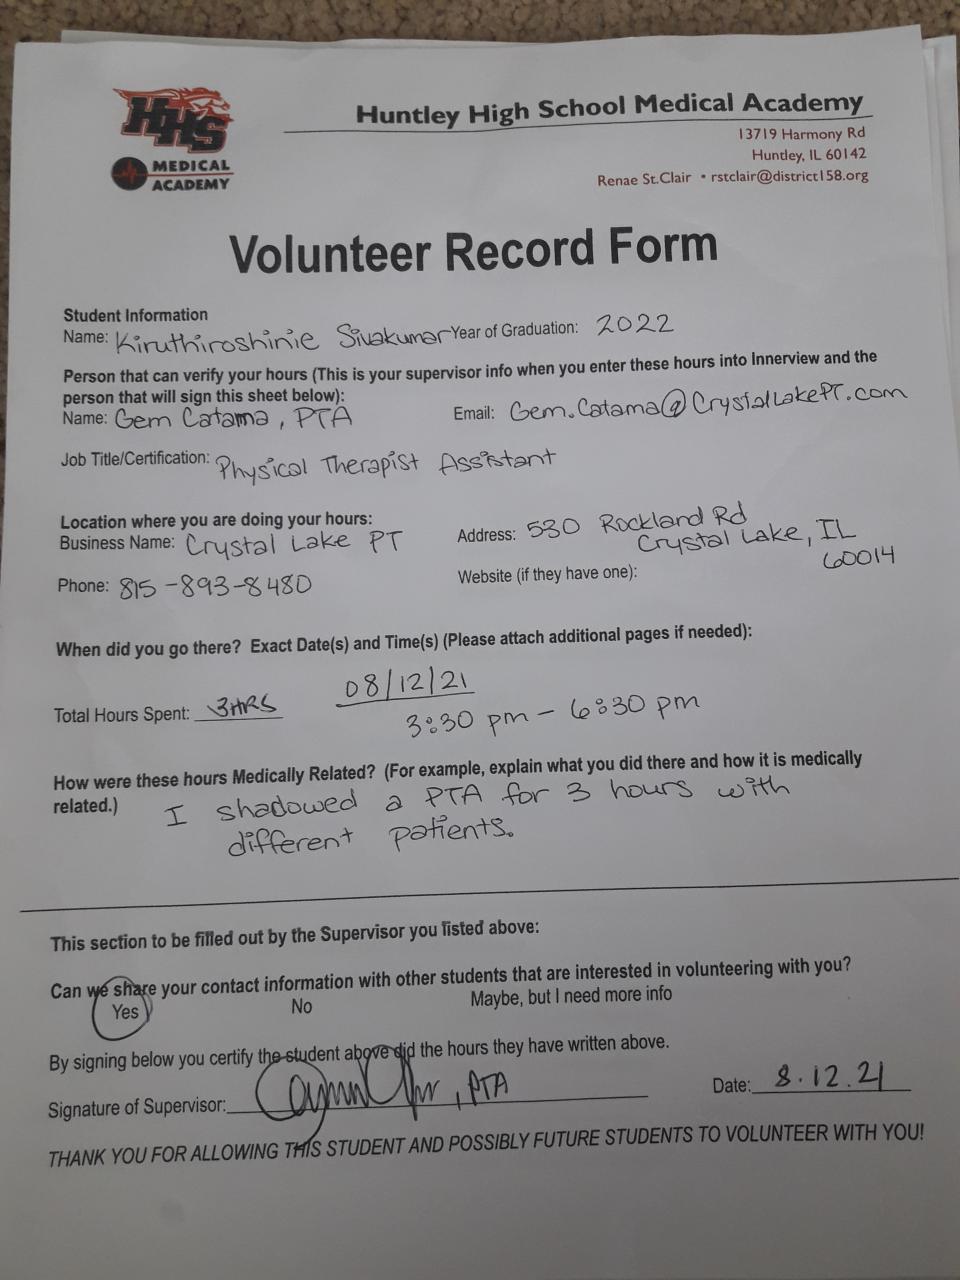 HHS
MEDICAL
ACADEMY
Huntley High School Medical Academy
13719 Harmony Rd
Huntley, IL 60142
Renae St.Clair • rstclair@district158.org
Volunteer Record Form
Student Information
Name: Kiruthiroshinie Sivakumar Year of Graduation: 2022
Person that can verify your hours (This is your supervisor info when you enter these hours into Innerview and the
person that will sign this sheet below):
Name: Gem Catama, PTA Email: Gem.Catama@CrystalLakePT.com
Job Title/Certification: Physical Therapist Assistant
Location where you are doing your hours:
Business Name: Crystal Lake PT Address: 530 Rockland Rd
Crystal Lake, IL
60014
Phone: 815-893-8480 Website (if they have one):
When did you go there? Exact Date(s) and Time(s) (Please attach additional pages if needed):
Total Hours Spent: 3HRS 08/12/21
3:30 pm - 6:30 pm
How were these hours Medically Related? (For example, explain what you did there and how it is medically
related.) I shadowed a PTA for 3 hours with
different patients.
This section to be filled out by the Supervisor you listed above:
Can we share your contact information with other students that are interested in volunteering with you?
Yes No Maybe, but I need more info
By signing below you certify the student above did the hours they have written above.
Signature of Supervisor: , PTA Date: 8.12.21
THANK YOU FOR ALLOWING THIS STUDENT AND POSSIBLY FUTURE STUDENTS TO VOLUNTEER WITH YOU!